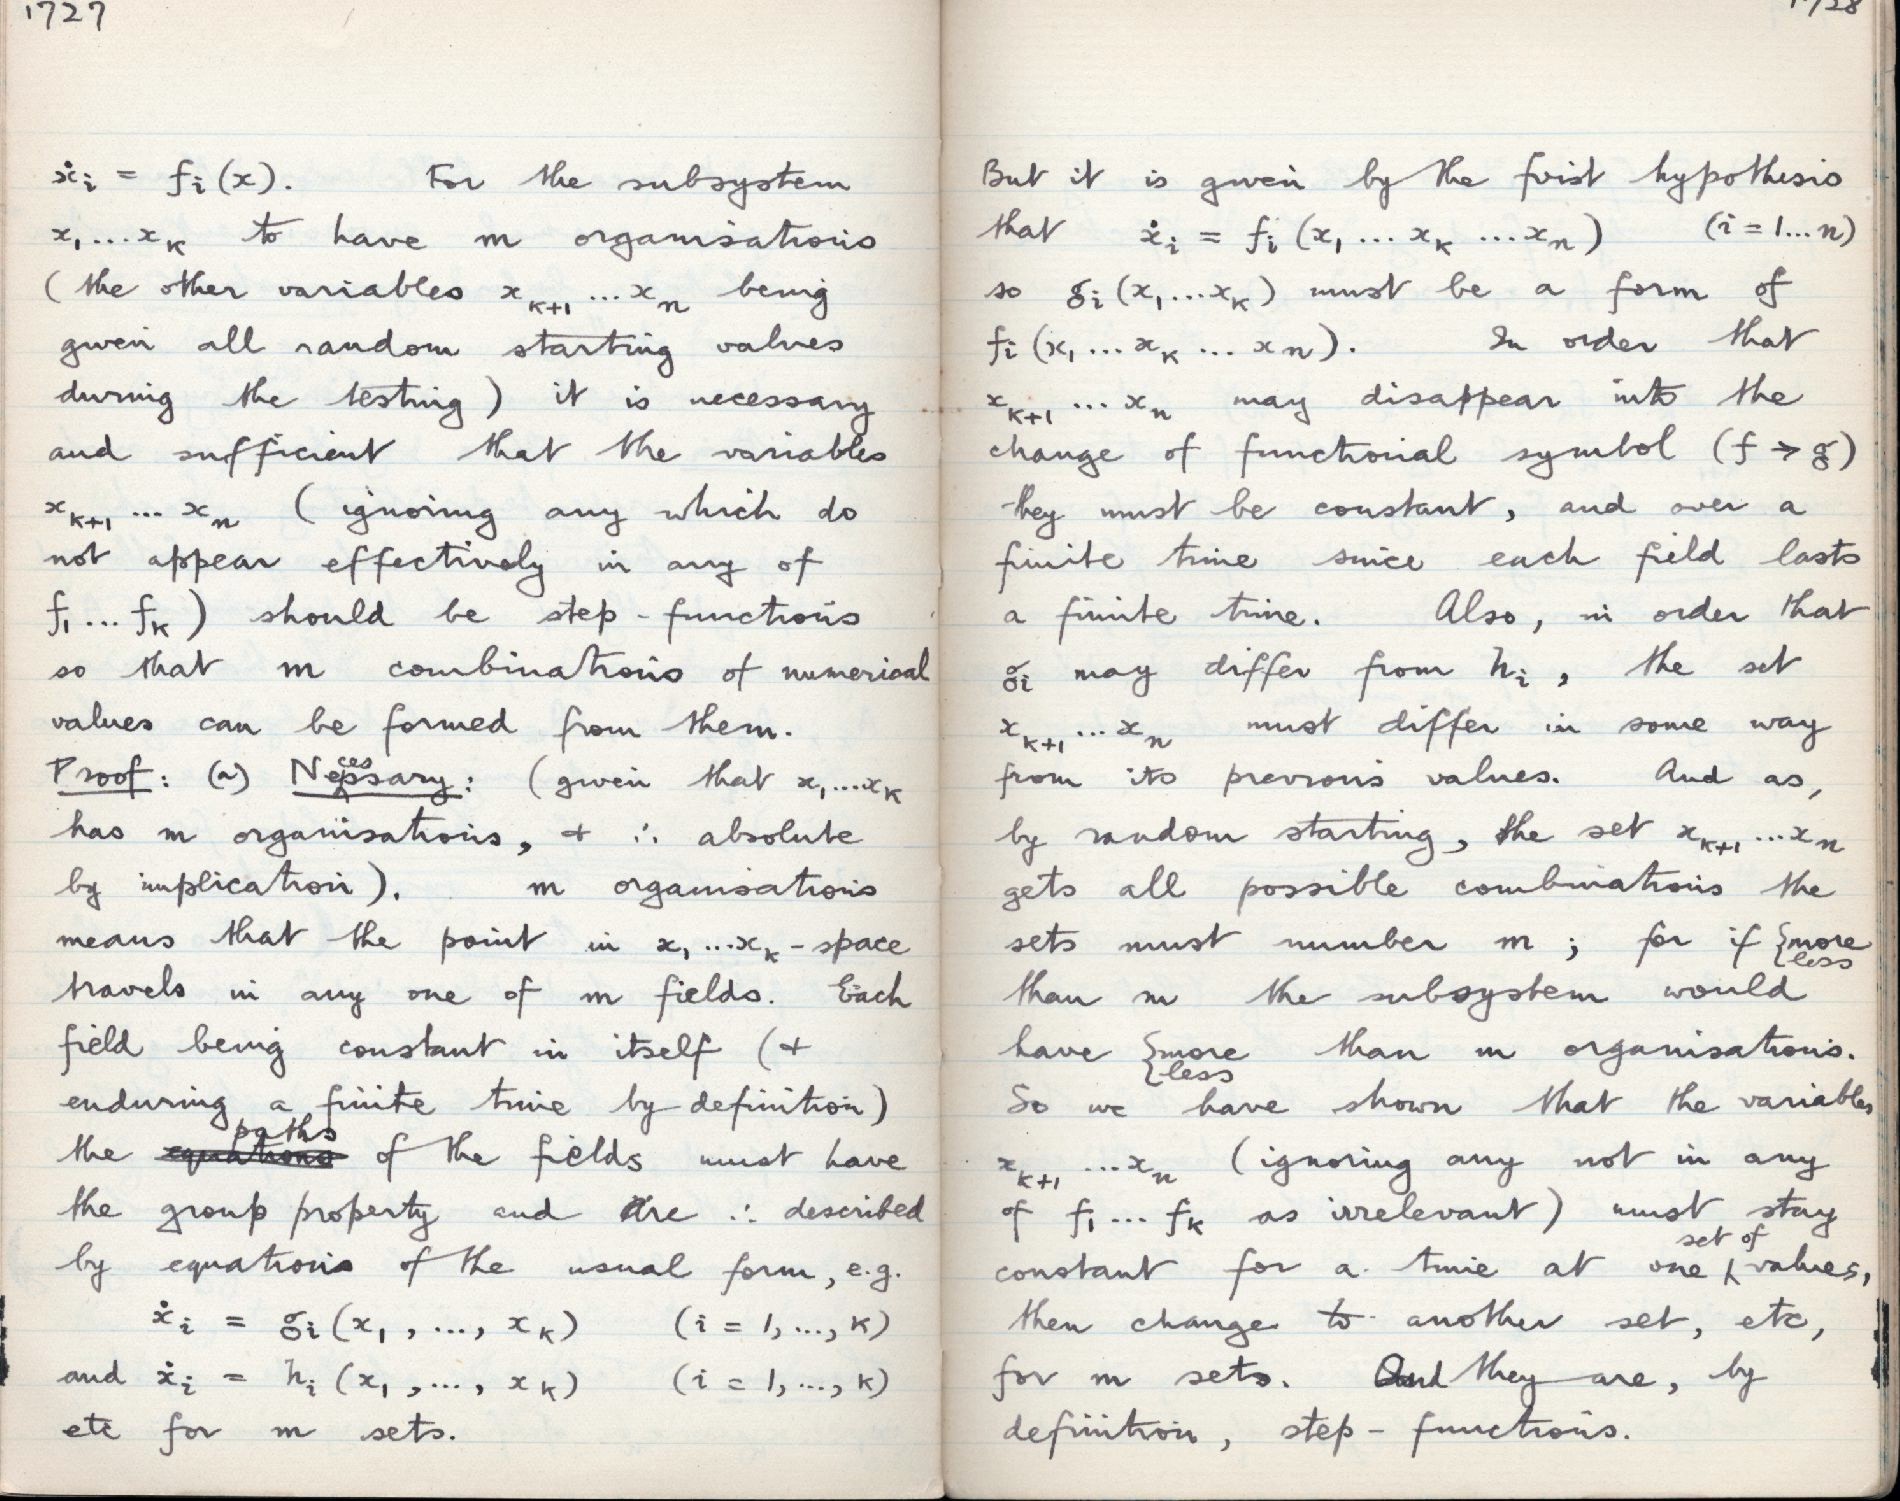 1727
ẋᵢ = fᵢ(x). For the subsystem
x₁...xₖ to have m organisations
(the other variables xₖ₊₁...xₙ being
given all random starting values
during the testing) it is necessary
and sufficient that the variables
xₖ₊₁...xₙ (ignoring any which do
not appear effectively in any of
f₁...fₖ) should be step-functions
so that m combinations of numerical
values can be formed from them.
Proof: (a) Necessary: (given that x₁...xₖ
has m organisations, + ∴ absolute
by implication). m organisations
means that the point in x₁...xₖ-space
travels in any one of m fields. Each
field being constant in itself (+
enduring a finite time by definition)
the equations paths of the fields must have
the group property and are ∴ described
by equations of the usual form, e.g.
ẋᵢ = gᵢ(x₁,...,xₖ) (i = 1,...,k)
and ẋᵢ = hᵢ(x₁,...,xₖ) (i = 1,...,k)
etc for m sets.
1728
But it is given by the first hypothesis
that ẋᵢ = fᵢ(x₁...xₖ...xₙ) (i = 1...n)
so gᵢ(x₁...xₖ) must be a form of
fᵢ(x₁...xₖ...xₙ). In order that
xₖ₊₁...xₙ may disappear into the
change of functional symbol (f → g)
they must be constant, and over a
finite time since each field lasts
a finite time. Also, in order that
gᵢ may differ from hᵢ, the set
xₖ₊₁...xₙ must differ in some way
from its previous values. And as,
by random starting, the set xₖ₊₁...xₙ
gets all possible combinations the
sets must number m; for if {more
less
than m the subsystem would
have {more than m organisations.
less
So we have shown that the variables
xₖ₊₁...xₙ (ignoring any not in any
of f₁...fₖ as irrelevant) must stay
constant for a time at one set of values,
then change to another set, etc,
for m sets. And they are, by
definition, step-functions.